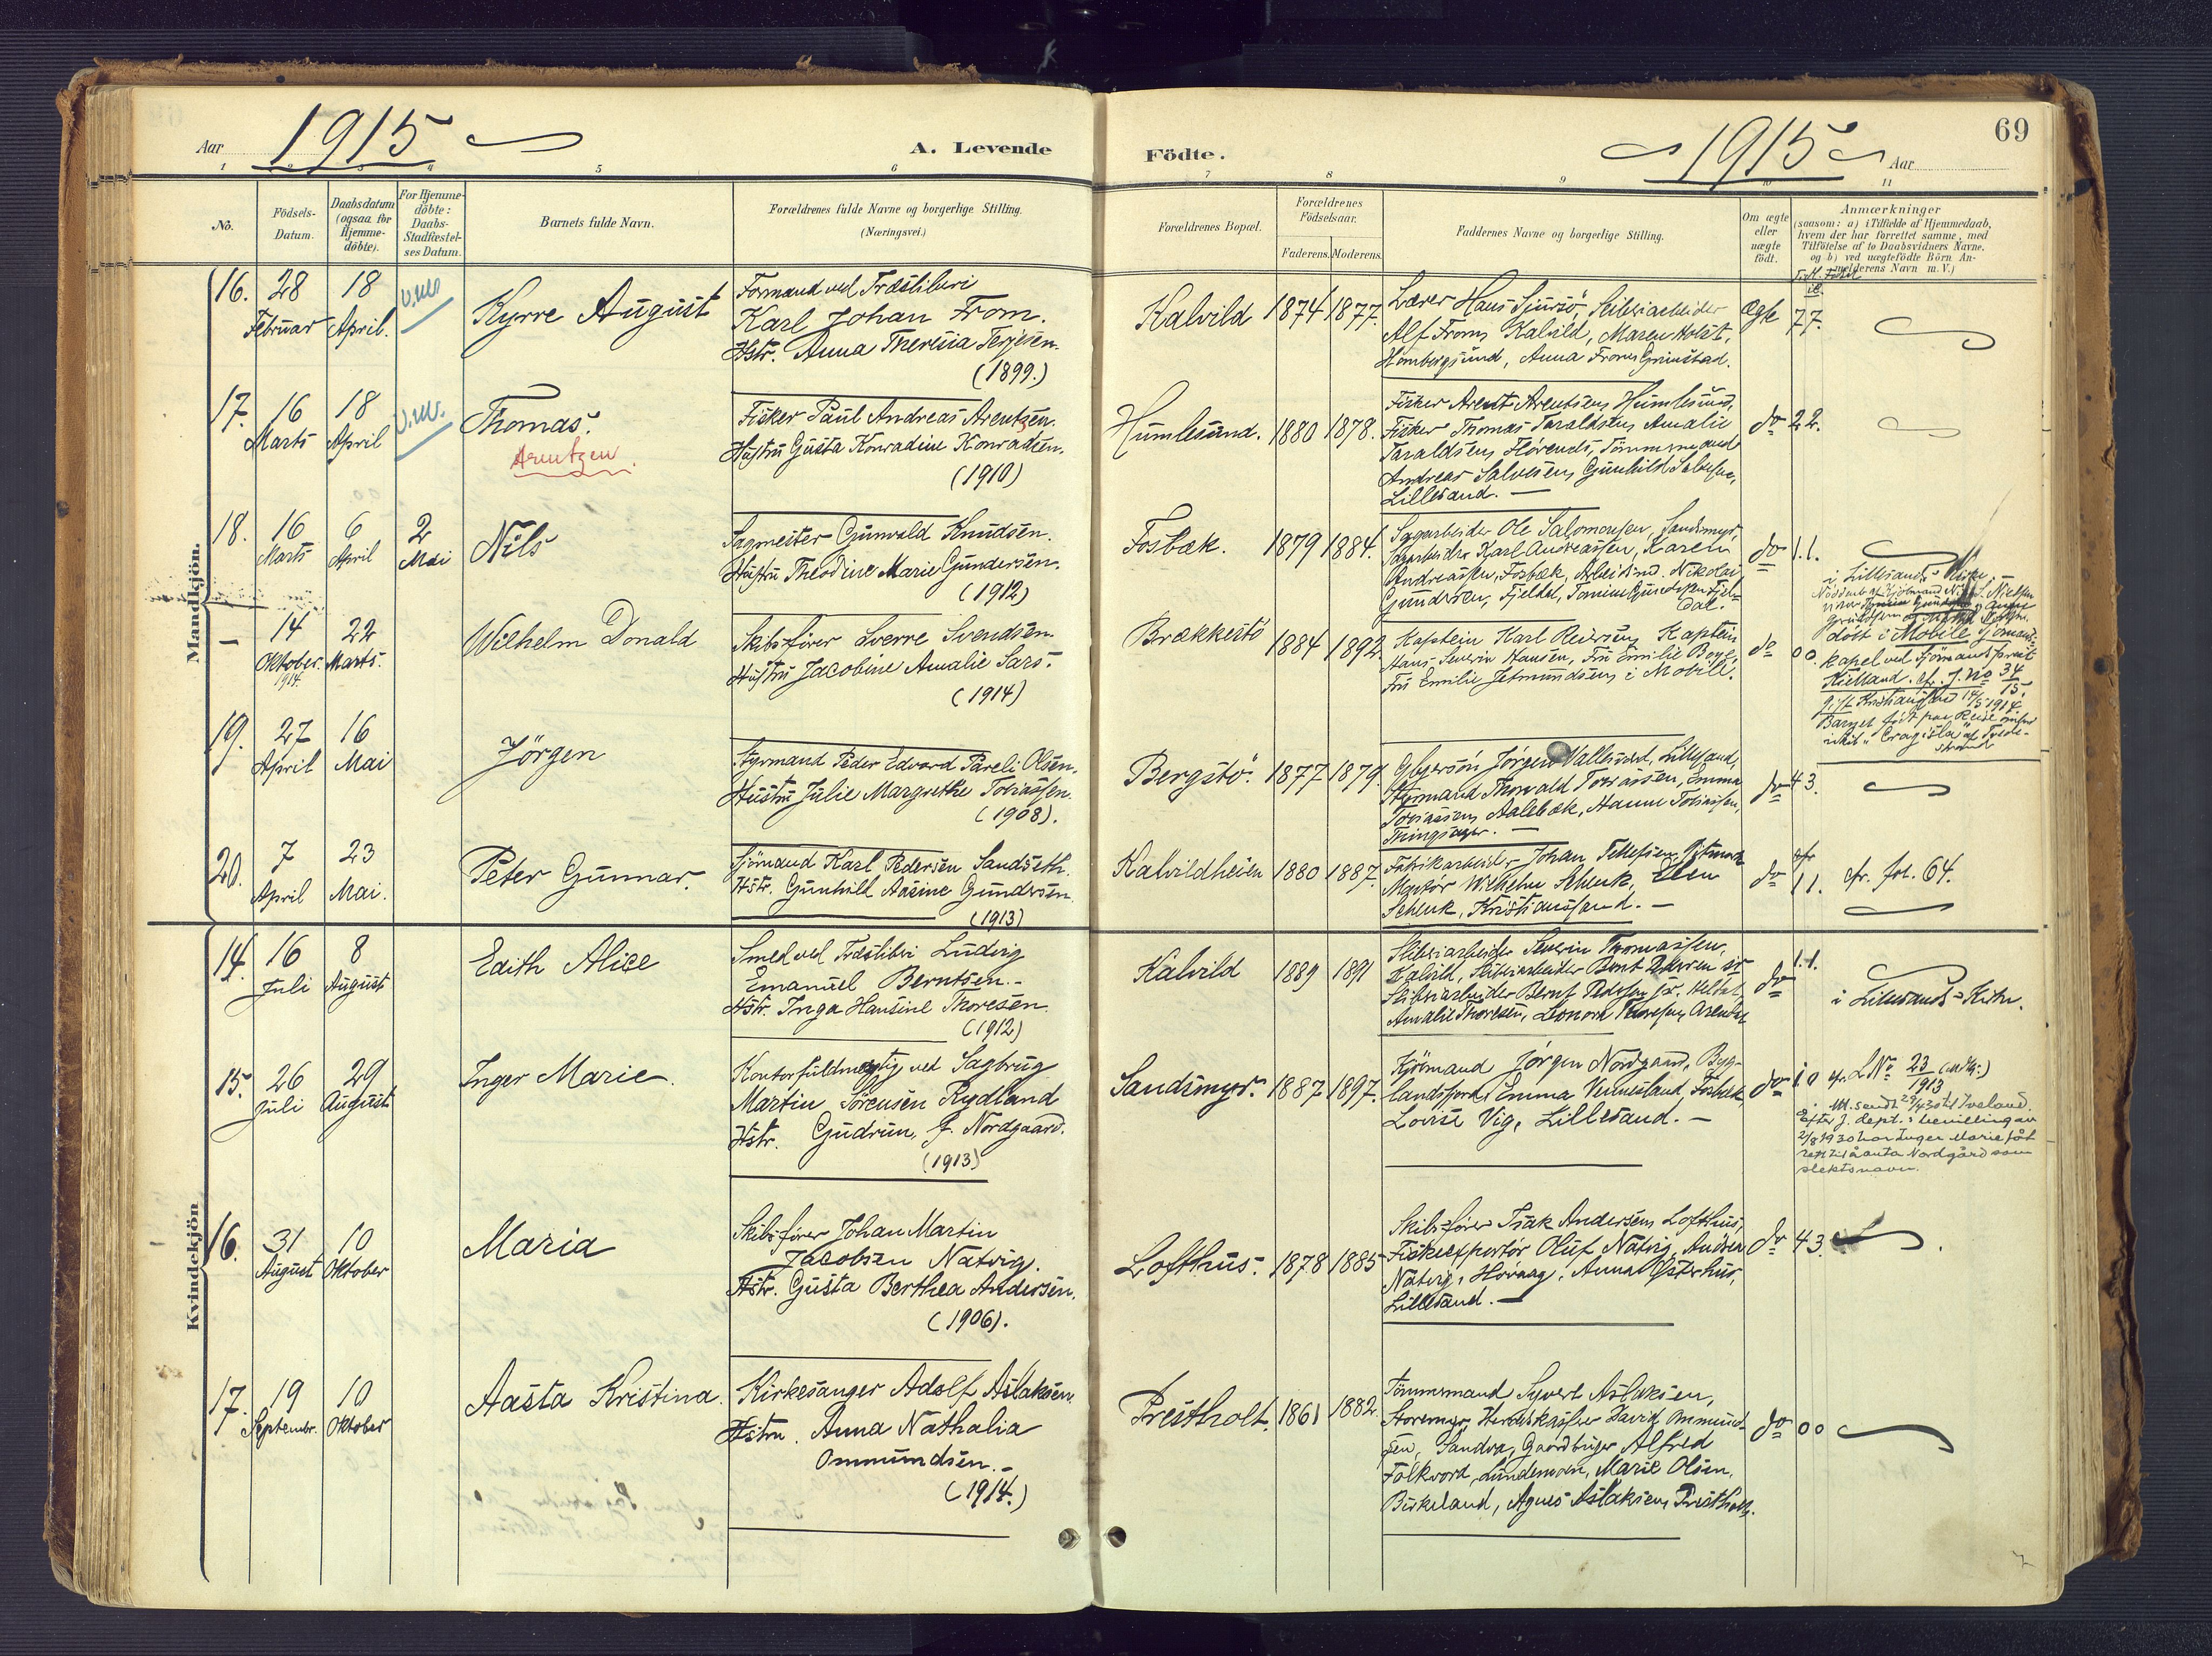 Aar 1915
A. Levende
Födte.
1915 Aar
69
1 2 3 4 5 6 7 8 9 10 11
No.
Födsels-
Datum.
Daabsdatum
(ogsaa for
Hjemme-
döbte).
For Hjemme-
döbte:
Daabs-
Stadfæstel-
ses Datum.
Barnets fulde Navn.
Forældrenes fulde Navne og borgerlige Stilling.
(Næringsvei.)
Forældrenes Bopæl.
Forældrenes
Födselsaar.
Faderens. Moderens.
Faddernes Navne og borgerlige Stilling.
Om ægte
eller
uægte
födt.
Anmærkninger
(saasom: a) i Tilfælde af Hjemmedaab,
hvem der har forrettet samme, med
Tilföielse af to Daabsvidners Navne,
og b) ved uægtefödte Börn An-
melderens Navn m. V.)
Mandkjön.
16. 28 Februar 18 April.
Kyrre August
Formand ved Træsliberi
Karl Johan From.
Hstr. Anna Theresia Terjesen.
(1899.)
Kalvild 1874 1877.
Lærer Hans Sjursö, Sliberiarbeider
Alf From, Kalvild, Maren Holst,
Hombergsund, Anna From, Grimstad.
Ægte 77.
17. 16 Marts 18 April
Thomas.
Arentzen.
Fisker Paul Andreas Arentzen.
Hustru Gusta Konradine Konradsen.
(1910)
Humlesund. 1880 1878.
Fisker Arent Arentsen, Humlesund,
Fisker Thomas Taraldsen, Amalie
Taraldsen, Tömmermand
Andreas Salvesen, Gunhild Salvesen,
Lillesand.
do 22.
18. 16 Marts 6 April 2 Mai
Nils
Sagmester Gunvald Knudsen.
Hustru Theodine Marie Gundersen.
(1912)
Fosbæk. 1879 1884.
Sagarbeider Ole Salomonsen, Sandsmyr,
Sagarbeider Karl Andreassen, Karen
Andreassen, Fosbæk, Nikolai
Gundersen, Fjeldal, Gundersen, Fjel-
dal.
do 1.1.
i Lillesands Kirke.
– 14 Oktober. 1914. 22 Marts.
Wilhelm Donald
Skibsförer Sverre Svendsen
Hustru Jacobine Amalie Sars.
(1914)
Brækkestö 1884 1892
Kaptein Karl Reiersen, Kaptein
Hans Severin Hansen, Fru Emilie Boye,
Fru Emilie Jetmundsen i Mobile.
do 00.
döbt i Mobile Sjömands-
kapel ved Sjömandsprest
Kielland. cfr. J. No 34/15.
gift Kristiansand 14/5 1914
Barnet födt paa Reise
19. 27 April 16 Mai
Jörgen
Styrmand Peder Edvard Pareli Olsen.
Hustru Julie Margrethe Tobiassen.
(1908).
Bergstö. 1877 1879.
Jörgen Vallesverd, Lillesand,
Styrmand Thorvald Tobiassen, Emma
Tobiassen, Aalebæk, Hanne Tobiassen,
Tingsager.
do 43.
20. 7 April 23 Mai.
Peter Gunnar.
Sjömand Karl Pedersen Sandseth.
Hstr. Gunhild Aasine Gundersen.
(1913)
Kalvildheien 1880 1887.
Fabrikarbeider Johan Tellefsen,
Montör Wilhelm Schenk, Ellen
Schenk, Kristiansand.
do 11. cfr. fol. 64.
Kvindekjön
14. 16 Juli 8 August
Edith Alice
Smed ved Træsliberi Ludvig
Emanuel Berntsen.
Hstr. Inga Hansine Thoresen.
(1912)
Kalvild 1889 1891
Sliberiarbeider Severin Thomassen,
Kalvild, Sliberiarbeider Bernt Pedersen sr
Sliberiarbeider Bernt Pedersen jr.
Amalie Thoresen, Leonora Thoresen, Arendal
do 1.1.
i Lillesands Kirke.
15. 26 Juli 29 August
Inger Marie.
Kontorfuldmægtig ved Sagbrug
Martin Sörensen Rydland
Hstr. Gudrun, f. Nordgaard.
(1913)
Sandsmyr. 1887 1897.
Kjörmand Jörgen Nordgaard, Byg-
landsfjord, Emma Vennesland, Fosbæk,
Lovise Vig, Lillesand.
do 1.0 cfr. L No 23/1913
Ut. sendt 29/4 30 til Iveland.
Efter J. dept.s bevilling av
2/8 1930 har Inger Marie fåt
rett til å anta Nordgård som
slektsnavn.
16. 31 August 10 Oktober
Maria
Skibsförer Johan Martin
Jacobsen Natvig.
Hstr. Gusta Berthea Andersen.
(1906).
Lofthus. 1878 1885
Skibsförer Isak Andersen, Lofthus,
Fiskeexportör Oluf Natvig, Andrea
Natvig, Hövaag, Anna Osterhus,
Lillesand.
do 43.
17. 19 Septembr. 10 Oktober
Aasta Kristina.
Kirkesanger Adolf Aslaksen.
Hstru. Anna Nathalia
Ommundsen.
(1914.)
Prestholt. 1861 1882.
Tömmermand Syvert Aslaksen,
Storemyr, Herredskasserer David Ommund-
sen, Sandva, Gaardbruger Alfred
Folkvord, Lundemoen, Marie Olsen,
Birkeland, Agnes Aslaksen, Prestholt.
do 00